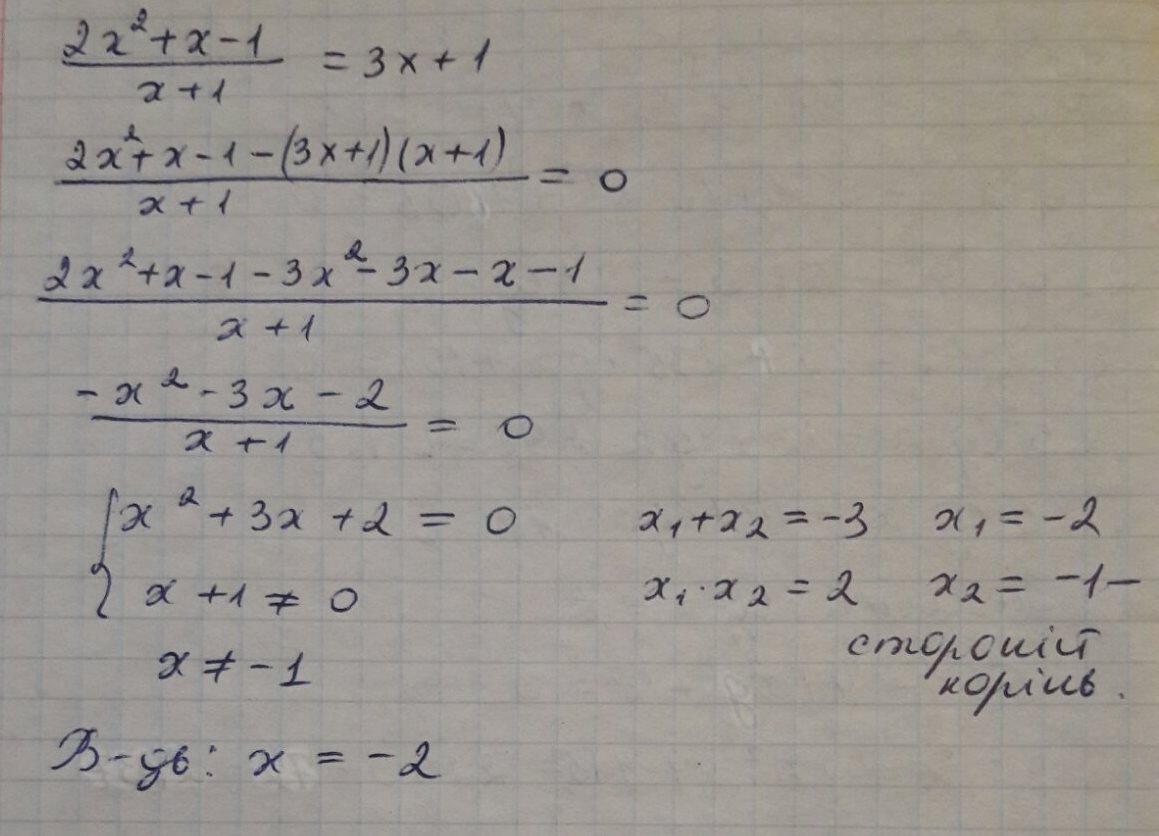 (2x²+x-1)/(x+1) = 3x+1
(2x²+x-1-(3x+1)(x+1))/(x+1) = 0
(2x²+x-1-3x²-3x-x-1)/(x+1) = 0
(-x²-3x-2)/(x+1) = 0
{x²+3x+2=0 x₁+x₂=-3 x₁=-2
x+1≠0 x₁·x₂=2 x₂=-1-
x≠-1 сторонній
корінь.
В-дь: x=-2